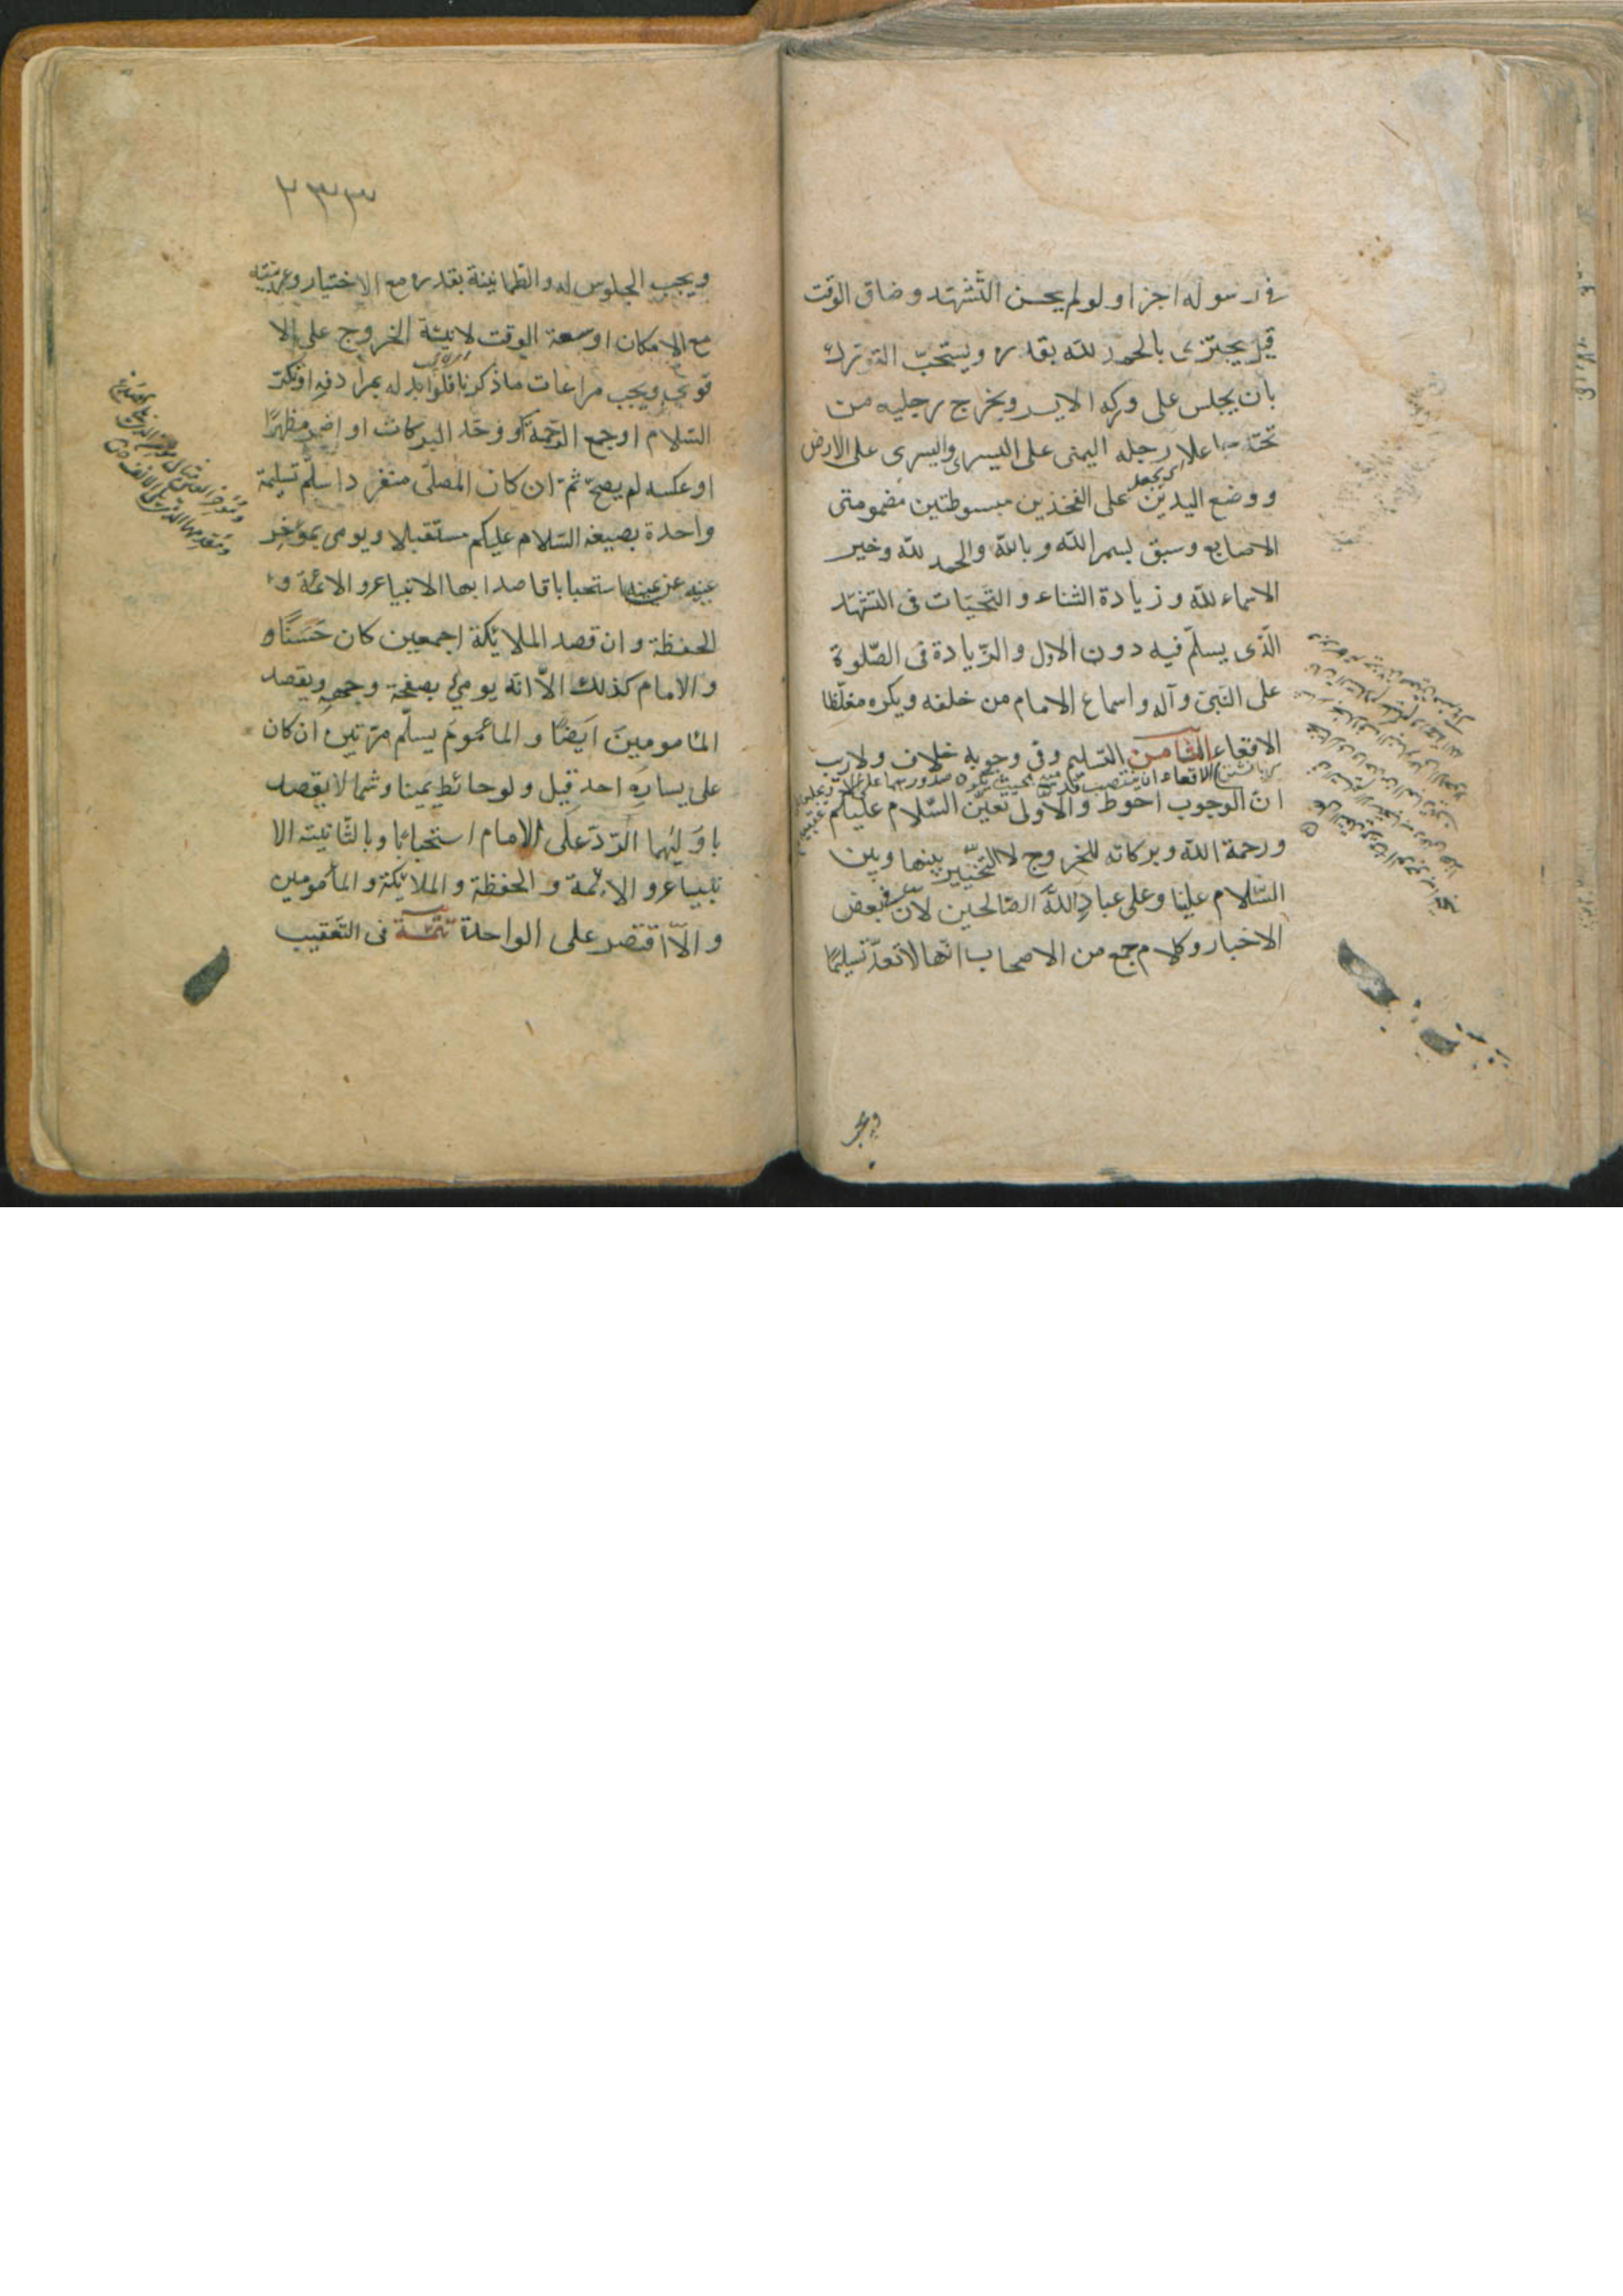 في رسوله اجزا ولو لم يحسن التّشهّد وضاق الوقت
قيل يجتزى بالحمد لله بقدره ويستحبّ التورك
بان يجلس على وركه الايسر ويخرج رجليه من
تحته جاعلا رجله اليمنى على اليسرى واليسرى على الارض
ووضع اليدين على الفخذين مبسوطتين مضمومتى
الاصابع وسبق بسم الله وبالله والحمد لله وخير
الاسماء لله وزيادة الثناء والتحيّات فى التشهّد
الّذى يسلّم فيه دون الاول والزّيادة فى الصّلوة
على النبىّ وآله واسماع الامام من خلفه ويكره مغلّظا
الاقعاء الثّامن التسليم وفى وجوبه خلاف ولاريب
انّ الوجوب احوط والاولى تعيّن السّلام عليكم
ورحمة الله وبركاته للخروج لا التخيّير بينها وبين
السّلام علينا وعلى عباد اللّه الصّالحين لانّ فى بعض
الاخبار وكلام جمع من الاصحاب انّها لا تعدّ تسليمًا
ويجب
٢٣٣
ويجب الجلوس له والطّمانينة بقدره مع الاختيار وعربيّته
مع الامكان او سعة الوقت لا نيّة الخروج على الا
قوى ويجب مراعات ما ذكرنا فلو ابدله بمرادفه او نكّر
السّلام او جمع الرّحمة او وحّد البركات او اضمر مظهرًا
او عكسه لم يصحّ ثمّ ان كان المصلّى منفردا سلّم تسليمة
واحدة بصيغه السّلام عليكم مستقبلا ويومى بمؤخر
عينه عن يمينه استحبابا قاصدا بها الانبياء و الائمة و
الحفظة وان قصد الملائكة اجمعين كان حَسَنًا و
والامام كذلك الاّ انّه يومئ بصفحة وجهه ويقصد
المامومينَ ايَضًا و المأموم يسلّم مرّتين ان كان
على يساره احد قيل ولو حائط يمينا وشمالا يقصد
باوليهما الرّدّ على الامام استحبابًا وبالثّانيته الا
نبياء و الائمة و الحفظة و الملائكة و المأمومين
و الاّ اقتصر على الواحدة تتمّة فى التّعقيب